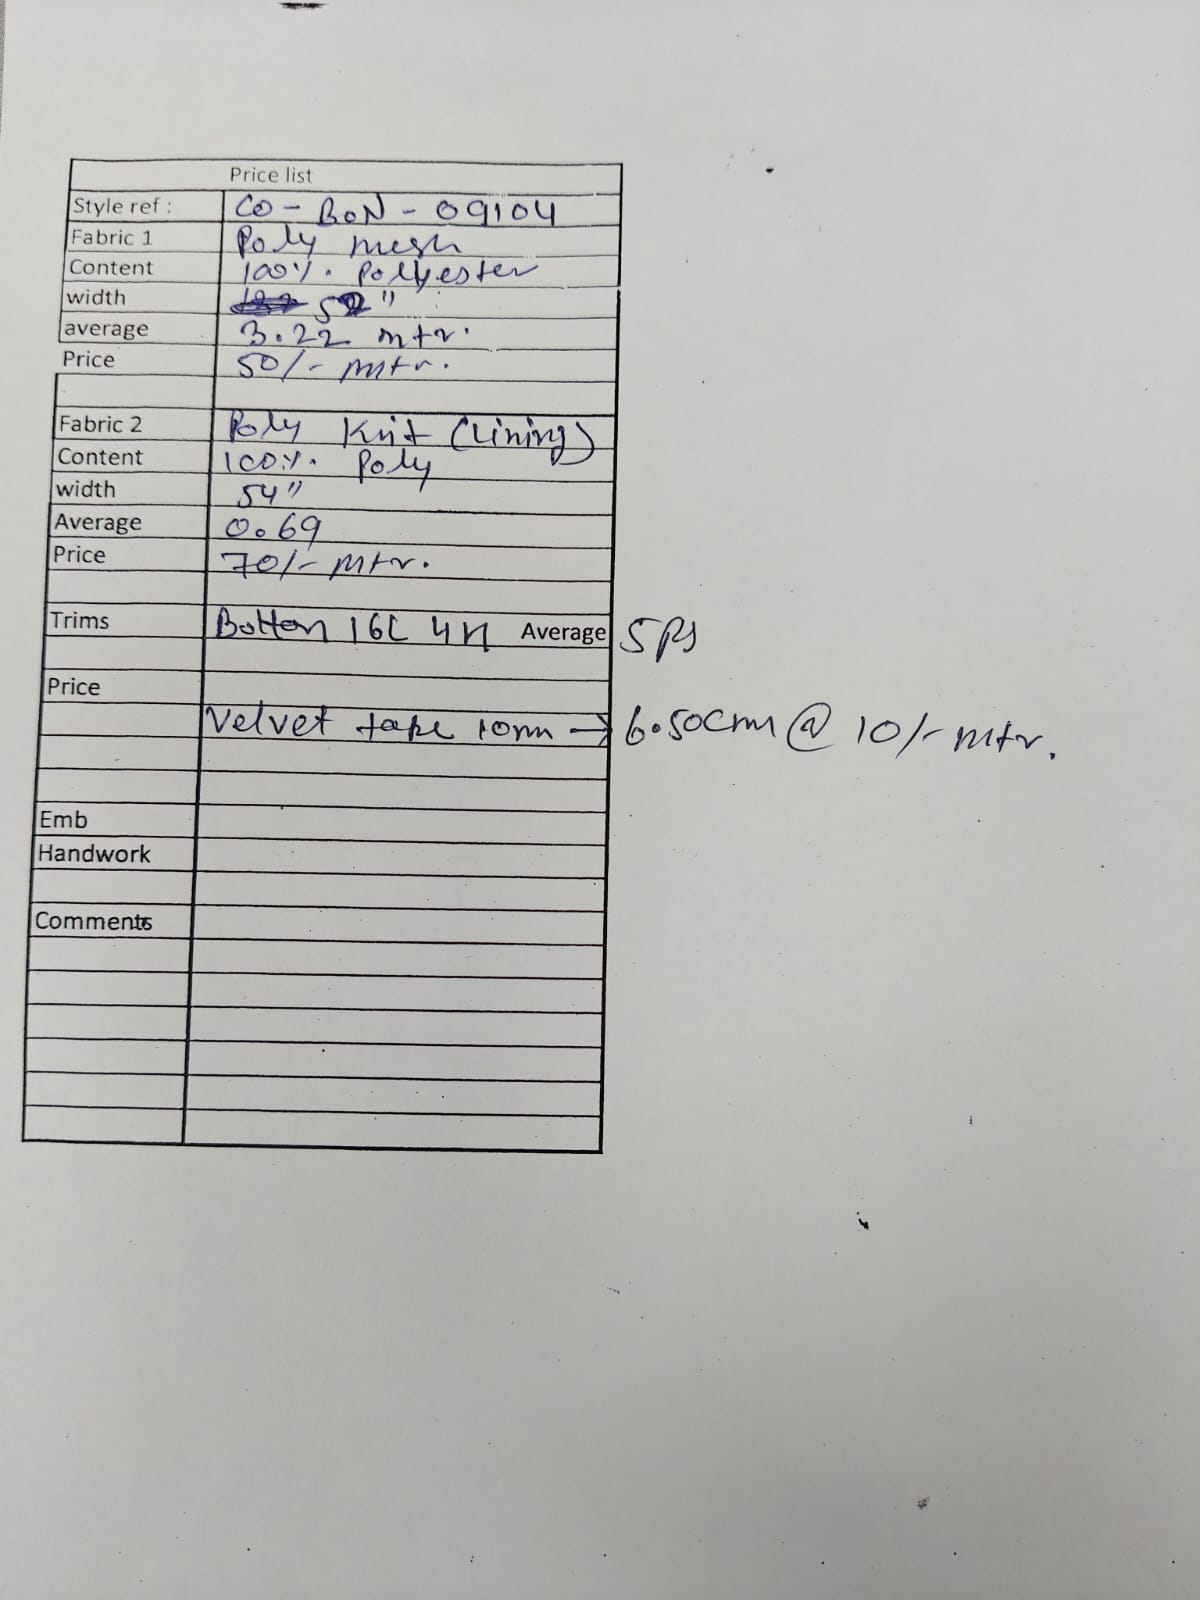 Price list
Style ref : CO - BON - 09104
Fabric 1 Poly mesh
Content 100%. Polyester
width 52"
average 3.22 mtr.
Price 50/- mtr.
Fabric 2 Poly Knit (Lining)
Content 100%. Poly
width 54"
Average 0.69
Price 70/- Mtr.
Trims Button 16L 4H Average 5 Ps
Price
Velvet tape 10mm → 6.50cm @ 10/- mtr.
Emb
Handwork
Comments